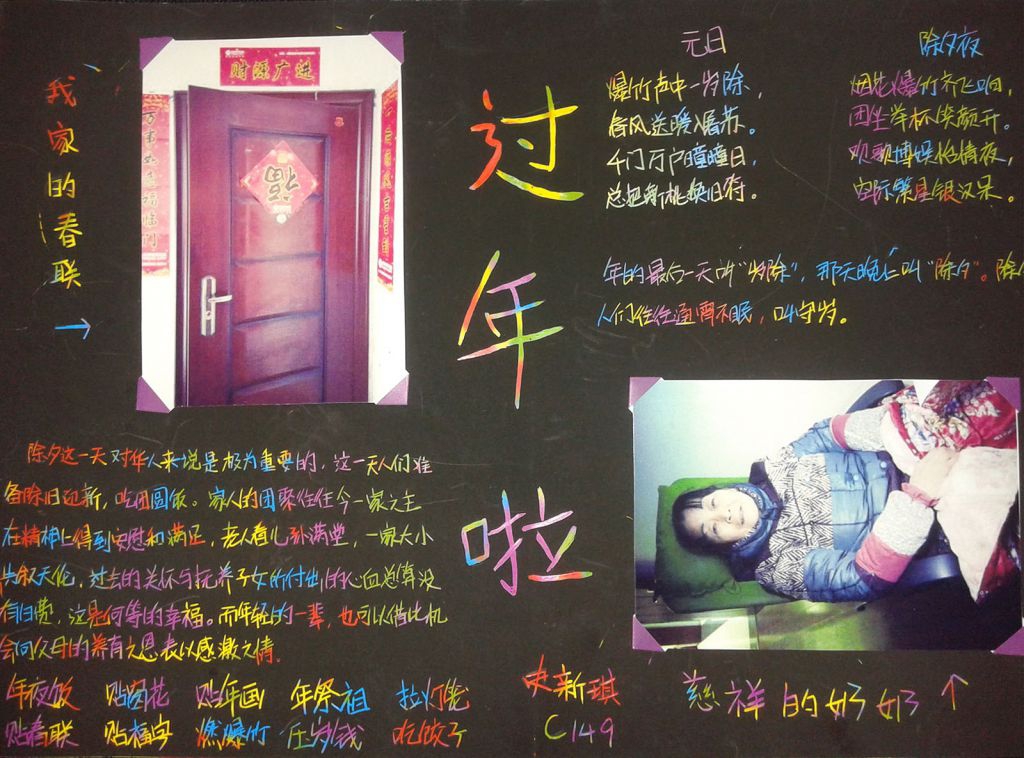 我家的春联
→
财源广进
福
过年啦
元日
爆竹声中一岁除，
春风送暖入屠苏。
千门万户曈曈日，
总把新桃换旧符。
除夕夜
烟花爆竹齐飞鸣，
团坐举杯笑颜开。
欢歌博娱怡情夜，
空际繁星银汉杲。
年的最后一天叫“岁除”，那天晚上叫“除夕”。除
人们往往通宵不眠，叫守岁。
除夕这一天对华人来说是极为重要的，这一天人们准
备除旧迎新，吃团圆饭。家人的团聚往往令一家之主
在精神上得到安慰和满足，老人看儿孙满堂，一家大小
共叙天伦，过去的关怀与抚养子女所付出的心血总算没
有白费，这是何等的幸福。而年轻的一辈，也可以借此机
会向父母的养育之恩表以感激之情。
年夜饭 贴窗花 贴年画 年祭祖 拉灯笼
贴春联 贴福字 燃爆竹 压岁钱 吃饺子
史新琪
C149
慈祥的好好↑